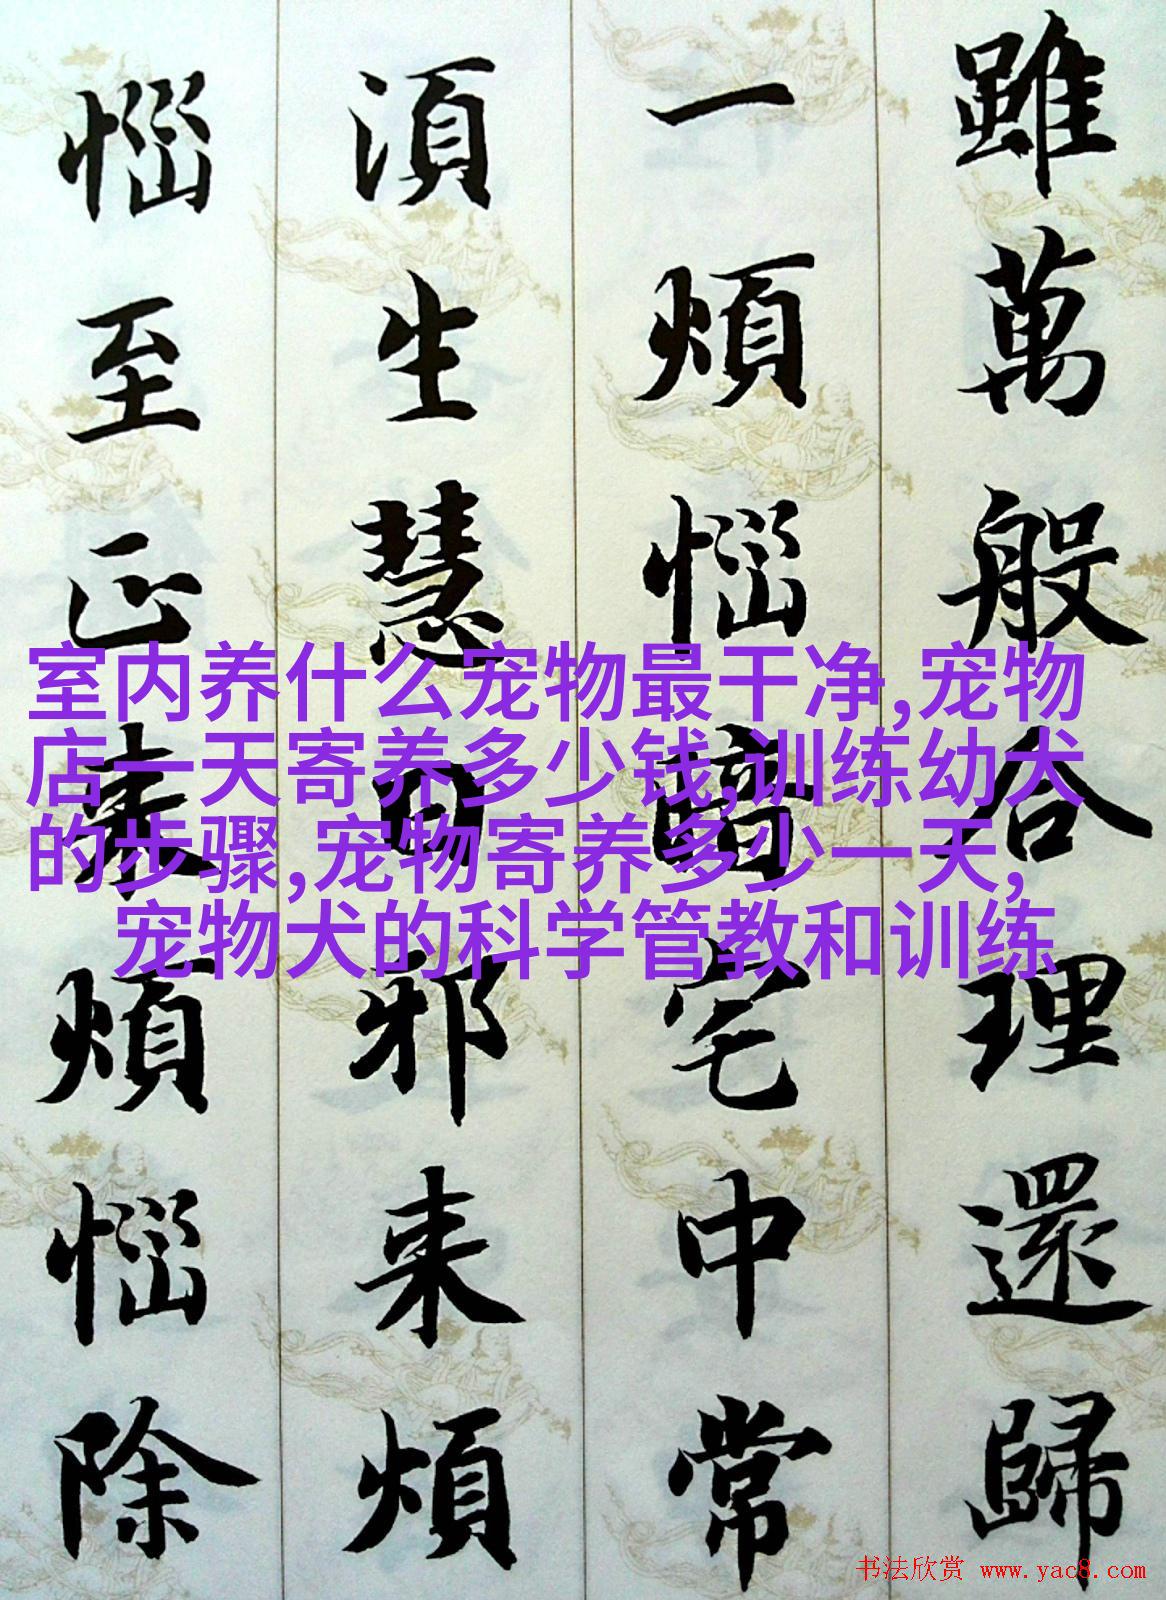 雖萬般合理還歸
一煩惱暗宅中常
湏生慧日邪来煩
惱至正来煩惱除
室内养什么宠物最干净,宠物
店一天寄养多少钱,训练幼犬
的步骤,宠物寄养多少一天,
宠物犬的科学管教和训练
书法欣赏 www.yac8.com